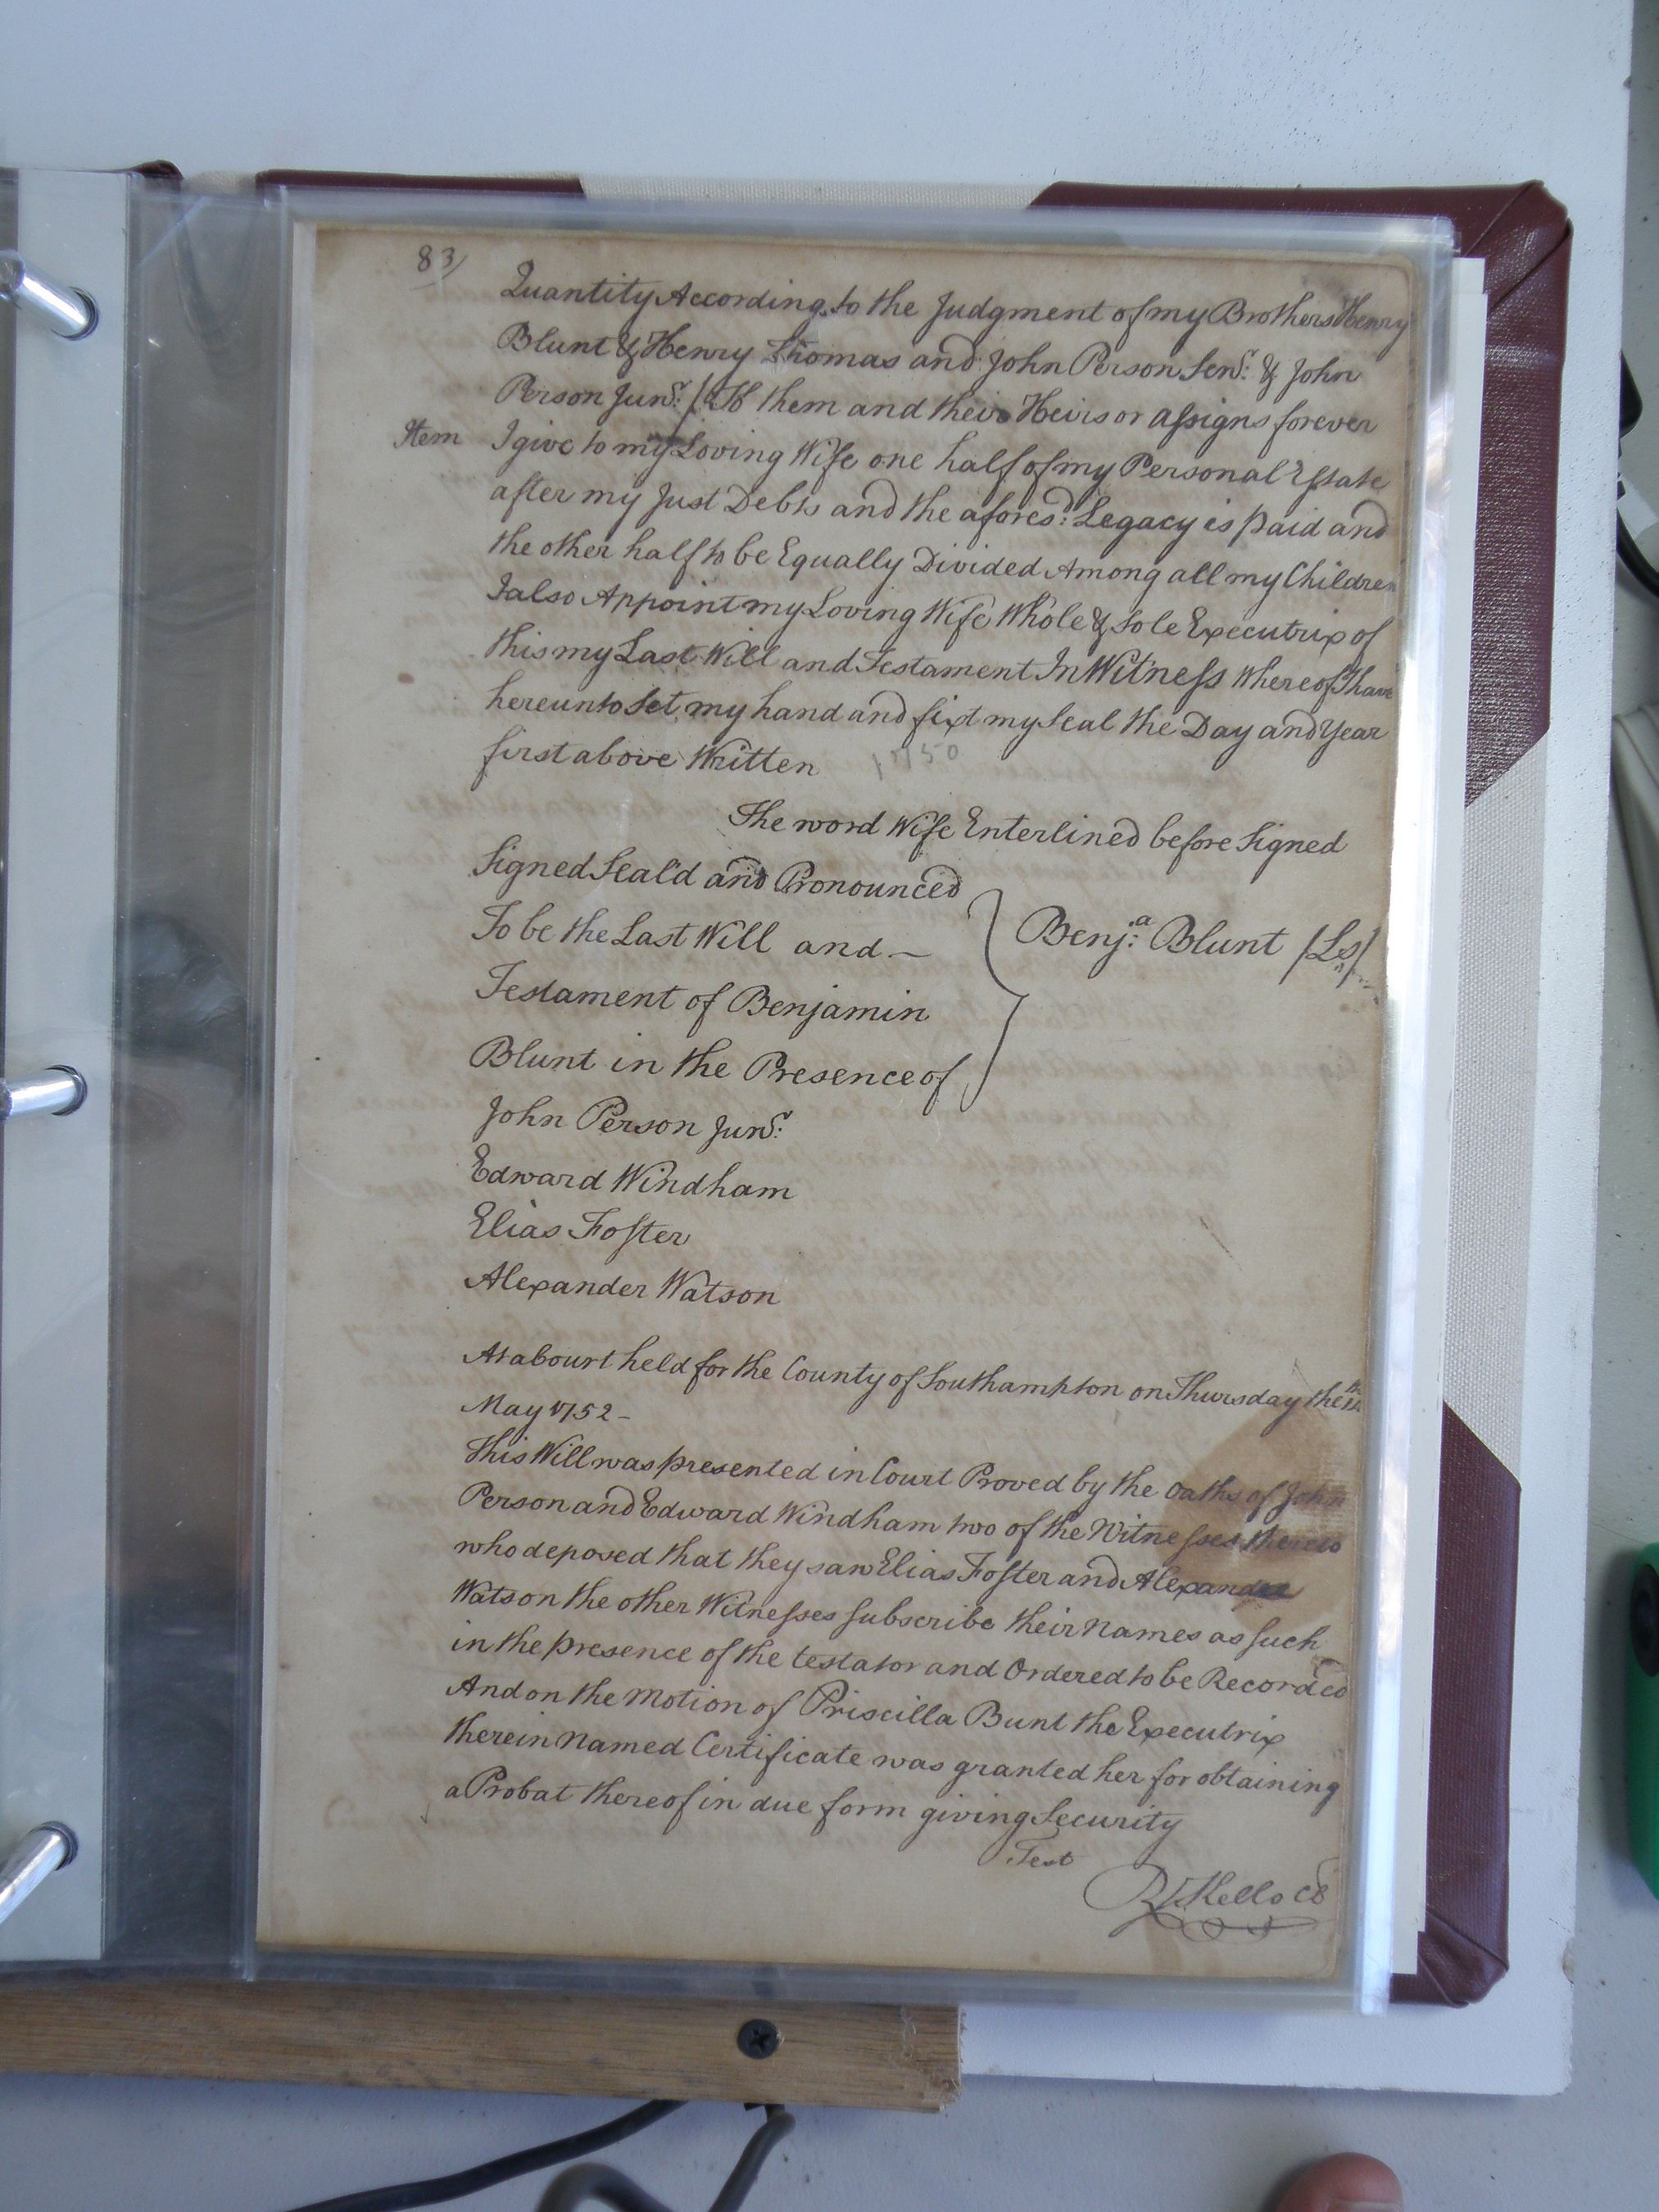 83/
Quantity According to the Judgment of my Brothers Henry
Blunt & Henry Thomas and John Person Senr: & John
Person Junr: / To them and their Heirs or assigns forever
Item I give to my Loving Wife one half of my Personal Estate
after my Just Debts and the aforesd: Legacy is paid and
the other half to be Equally Divided Among all my Children
I also Appoint my Loving Wife Whole & sole Executrix of
this my Last Will and Testament In Witness whereof I have
hereunto Set my hand and fixt my Seal the Day and Year
first above Written 1750
The word Wife Enterlined before Signed
Signed Seal'd and Pronounced
To be the Last Will and —
Testament of Benjamin
Blunt in the Presence of
Benja: Blunt /Ls/
John Person Junr:
Edward Windham
Elias Foster
Alexander Watson
At a Court held for the County of Southampton on Thursday the
May 1752 –
This Will was presented in Court Proved by the Oaths of John
Person and Edward Windham two of the Witnesses thereto
who deposed that they saw Elias Foster and Alexander
Watson the other Witnesses subscribe their Names as such
in the presence of the testator and Ordered to be Recorded
And on the Motion of Priscilla Bunt the Executrix
therein Named Certificate was granted her for obtaining
a Probat thereof in due form giving Security
Test
Rd. Kello CC